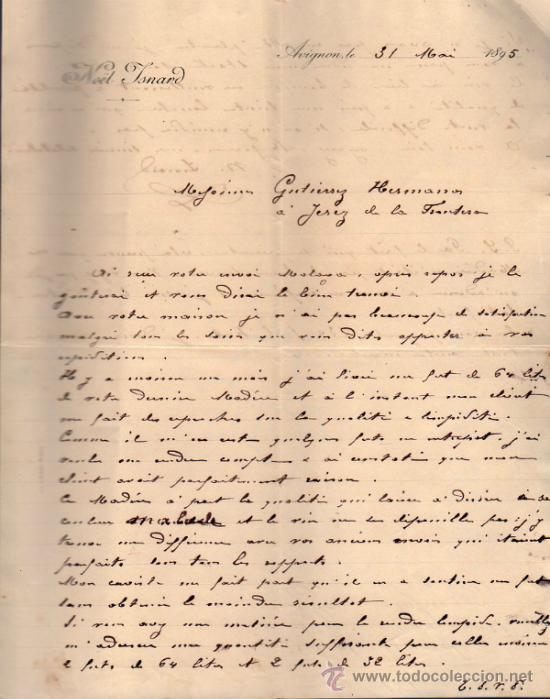 Avignon, le 31 Mai 1895
Noël Isnard
Messieurs Gutierrez Hermanos
à Jerez de la Frontera
Ai reçu votre envoi Malaga, après repos je le
goûterai et vous dirai le bien trouvé.
Avec votre maison je n'ai pas beaucoup de satisfaction
malgré tous les soins que vous dites apporter à vos
expéditions.
Il y a moins un mois j'ai livré un fut de 64 litres
de votre dernier Madère et à l'instant mon client
me fait des reproches sur la qualité & limpidité.
Comme il m'en est quelques futs en entrepôt, j'ai
voulu me rendre compte & ai constaté que mon
client avait parfaitement raison.
Ce Madère à part la qualité qui laisse à désirer a sa
couleur malade et le vin ne se dépouille pas, j'y
trouve une différence avec vos anciens envois qui étaient
parfaits sous tous les rapports.
Mon caviste me fait part qu'il en a un fut
sans obtenir le moindre résultat.
Si vous avez une matière pour le rendre limpide, veuillez
m'adresser une quantité suffisante pour coller moins
2 futs de 64 litres et 2 futs de 32 litres.
T. S. V. P.
© todocoleccion
www.todocoleccion.net